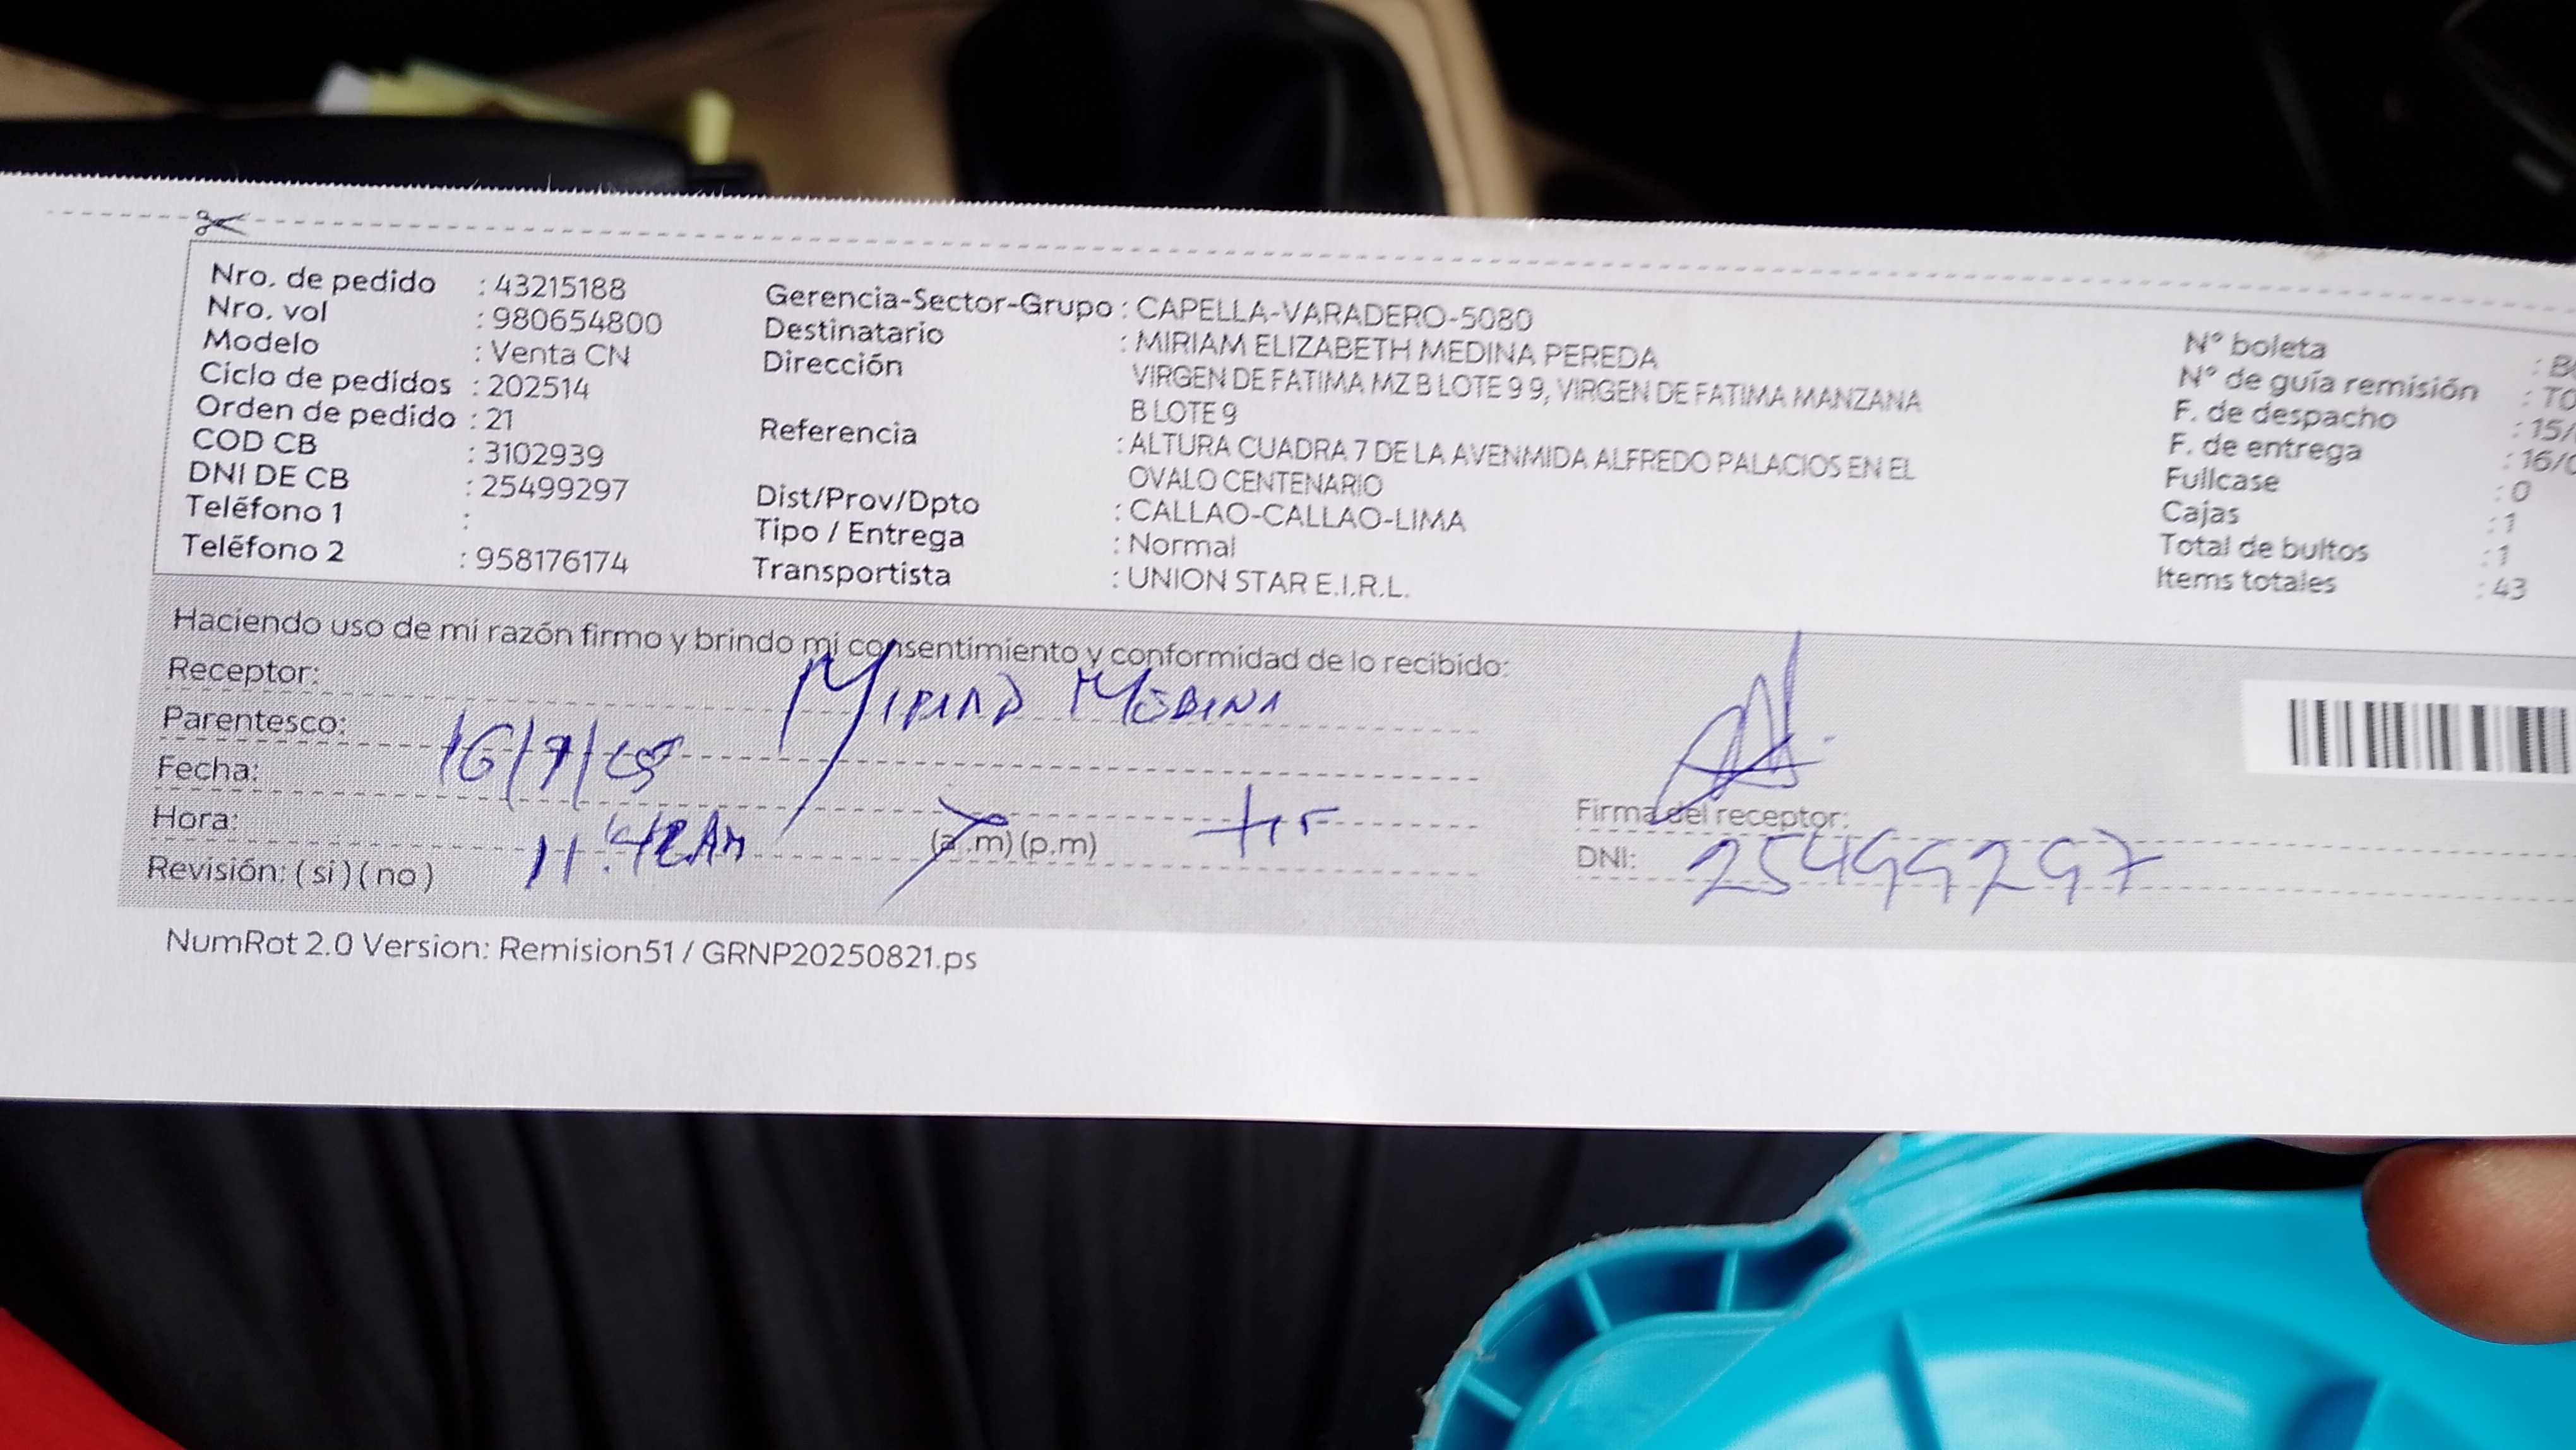 Nro. de pedido : 43215188
Nro. vol : 980654800
Modelo : Venta CN
Ciclo de pedidos : 202514
Orden de pedido : 21
COD CB : 3102939
DNI DE CB : 25499297
Teléfono 1 :
Teléfono 2 : 958176174
Gerencia-Sector-Grupo : CAPELLA-VARADERO-5080
Destinatario : MIRIAM ELIZABETH MEDINA PEREDA
Dirección VIRGEN DE FATIMA MZ B LOTE 9 9, VIRGEN DE FATIMA MANZANA
B LOTE 9
Referencia : ALTURA CUADRA 7 DE LA AVENMIDA ALFREDO PALACIOS EN EL
OVALO CENTENARIO
Dist/Prov/Dpto : CALLAO-CALLAO-LIMA
Tipo / Entrega : Normal
Transportista : UNION STAR E.I.R.L.
N° boleta : B
N° de guía remisión : TO
F. de despacho : 15/
F. de entrega : 16/0
Fullcase : 0
Cajas : 1
Total de bultos : 1
Items totales : 43
Haciendo uso de mi razón firmo y brindo mi consentimiento y conformidad de lo recibido:
Receptor: MIRIAM MEDINA
Parentesco:
Fecha: 16/9/25
Hora: 11:42AM (a.m) (p.m)
Revisión: ( si ) ( no )
Firma del receptor:
DNI: 25499297
NumRot 2.0 Version: Remision51 / GRNP20250821.ps